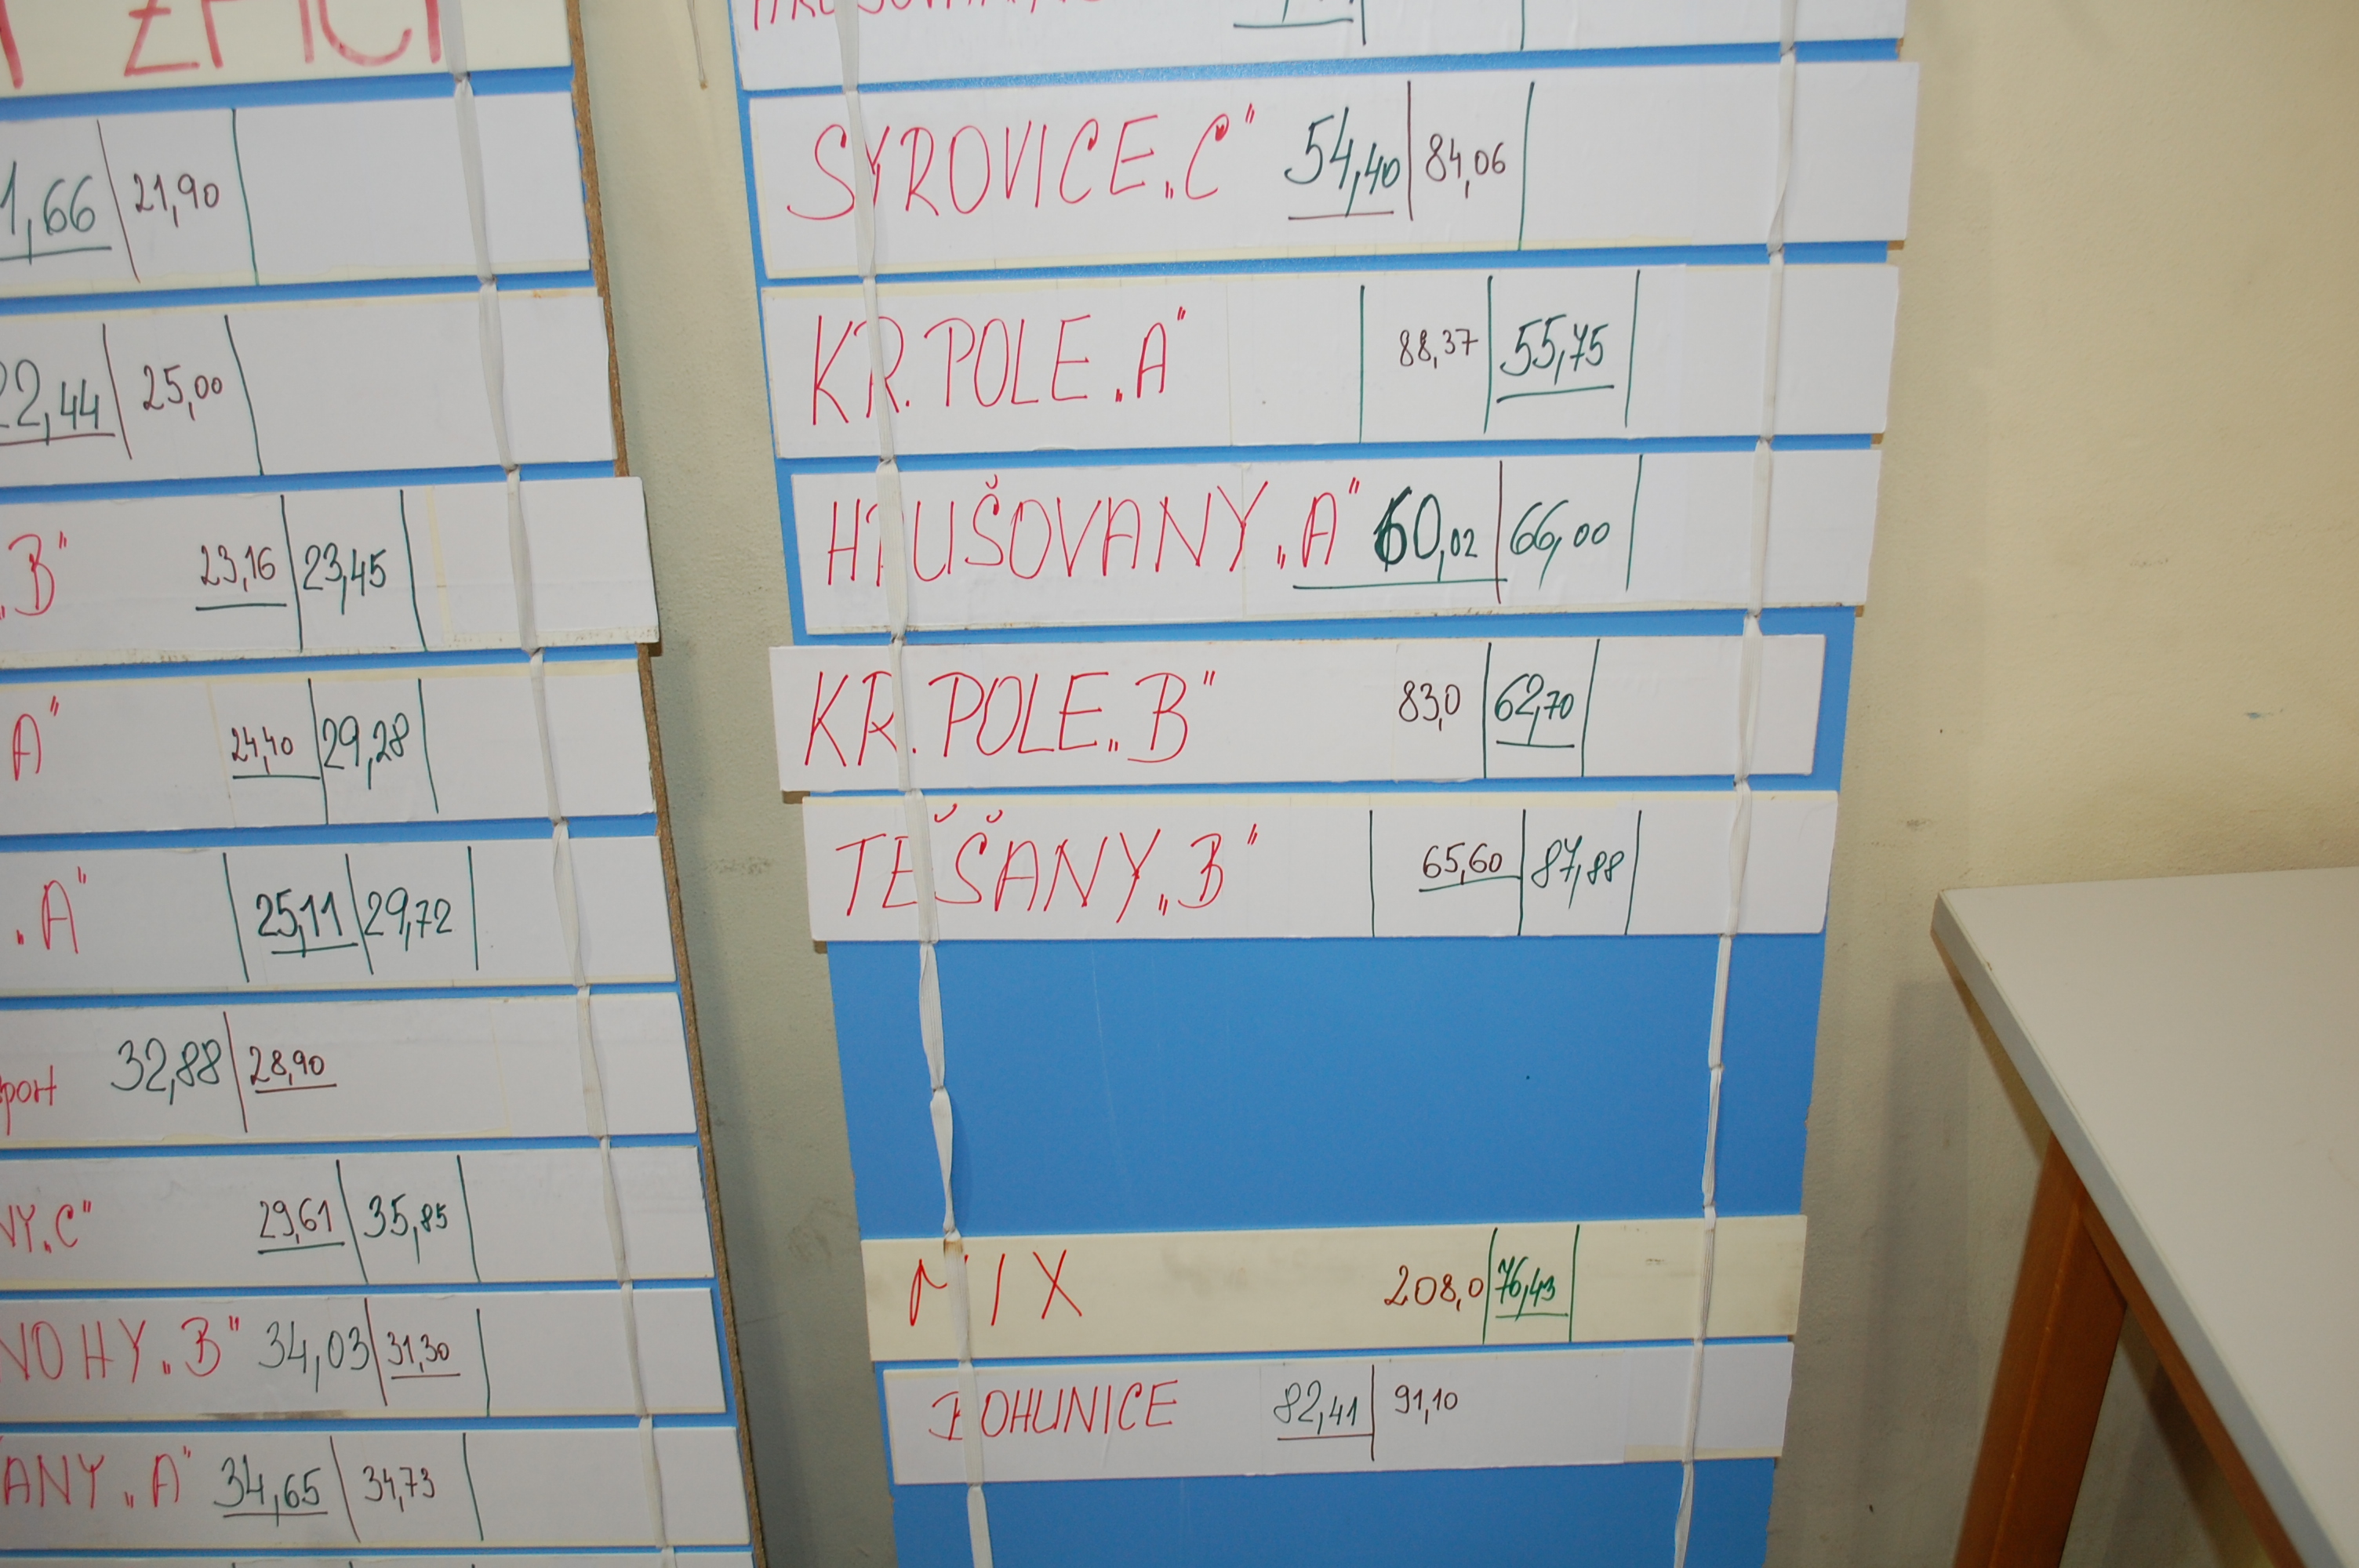 1,66 21,90
22,44 25,00
„B" 23,16 23,45
A" 24,40 29,28
„A" 25,11 29,72
port 32,88 28,90
NY„C" 29,61 35,85
NOHY„B" 34,03 31,30
ANY„A" 34,65 34,73
SYROVICE„C" 54,40 84,06
KR. POLE„A" 88,37 55,75
HRUŠOVANY„A" 60,02 66,00
KR. POLE„B" 83,0 62,70
TĚŠANY„B" 65,60 87,88
MIX 208,0 76,43
BOHUNICE 82,41 91,10